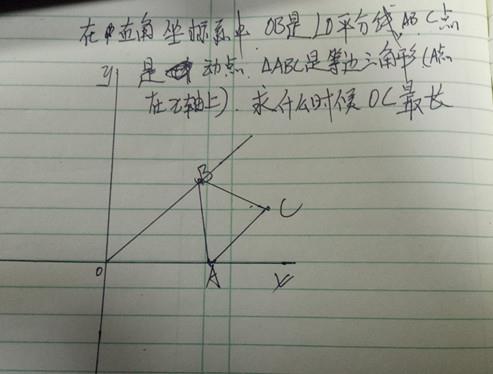 在直角坐标系中 OB是∠O平分线,AB C点
是动点. △ABC是等边三角形(A点
在x轴上). 求什么时候OC最长
y
B
C
O
A
x